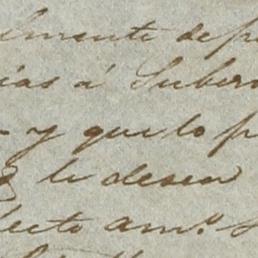 lmente de p
ias á Subero
y que lo p
le deseo
fecto am.º S